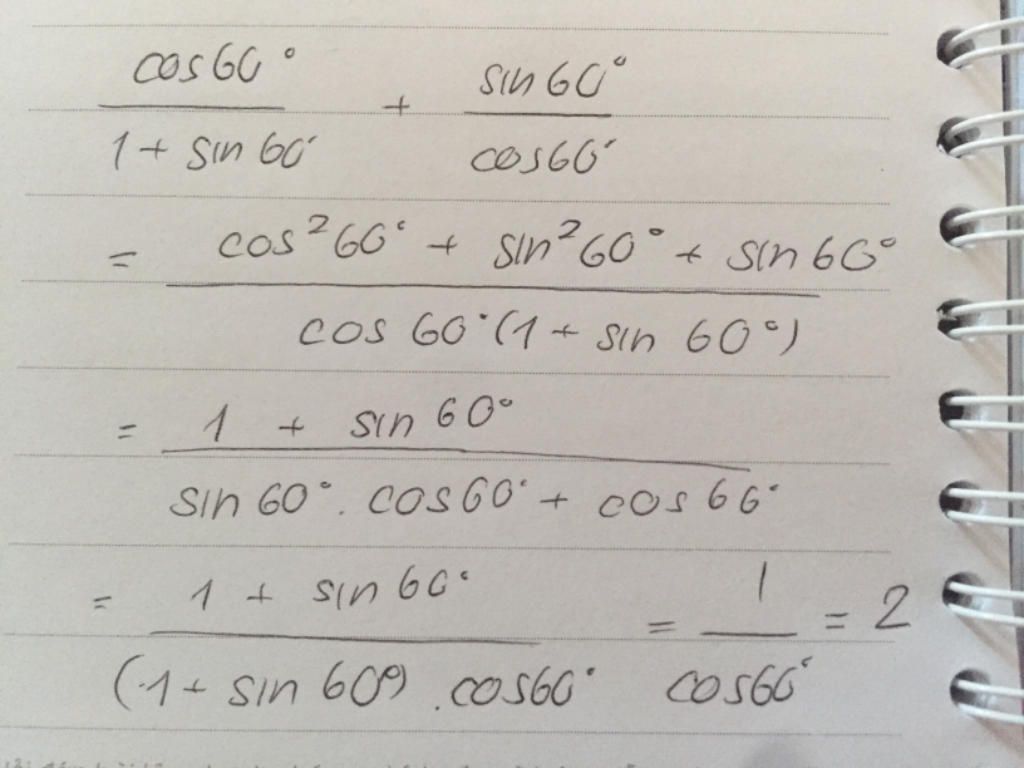 cos60° / 1 + sin60° + sin60° / cos60°
= cos²60° + sin²60° + sin60° / cos60°(1 + sin60°)
= 1 + sin60° / sin60° . cos60° + cos60°
= 1 + sin60° / (1 + sin60°) . cos60° = 1 / cos60° = 2